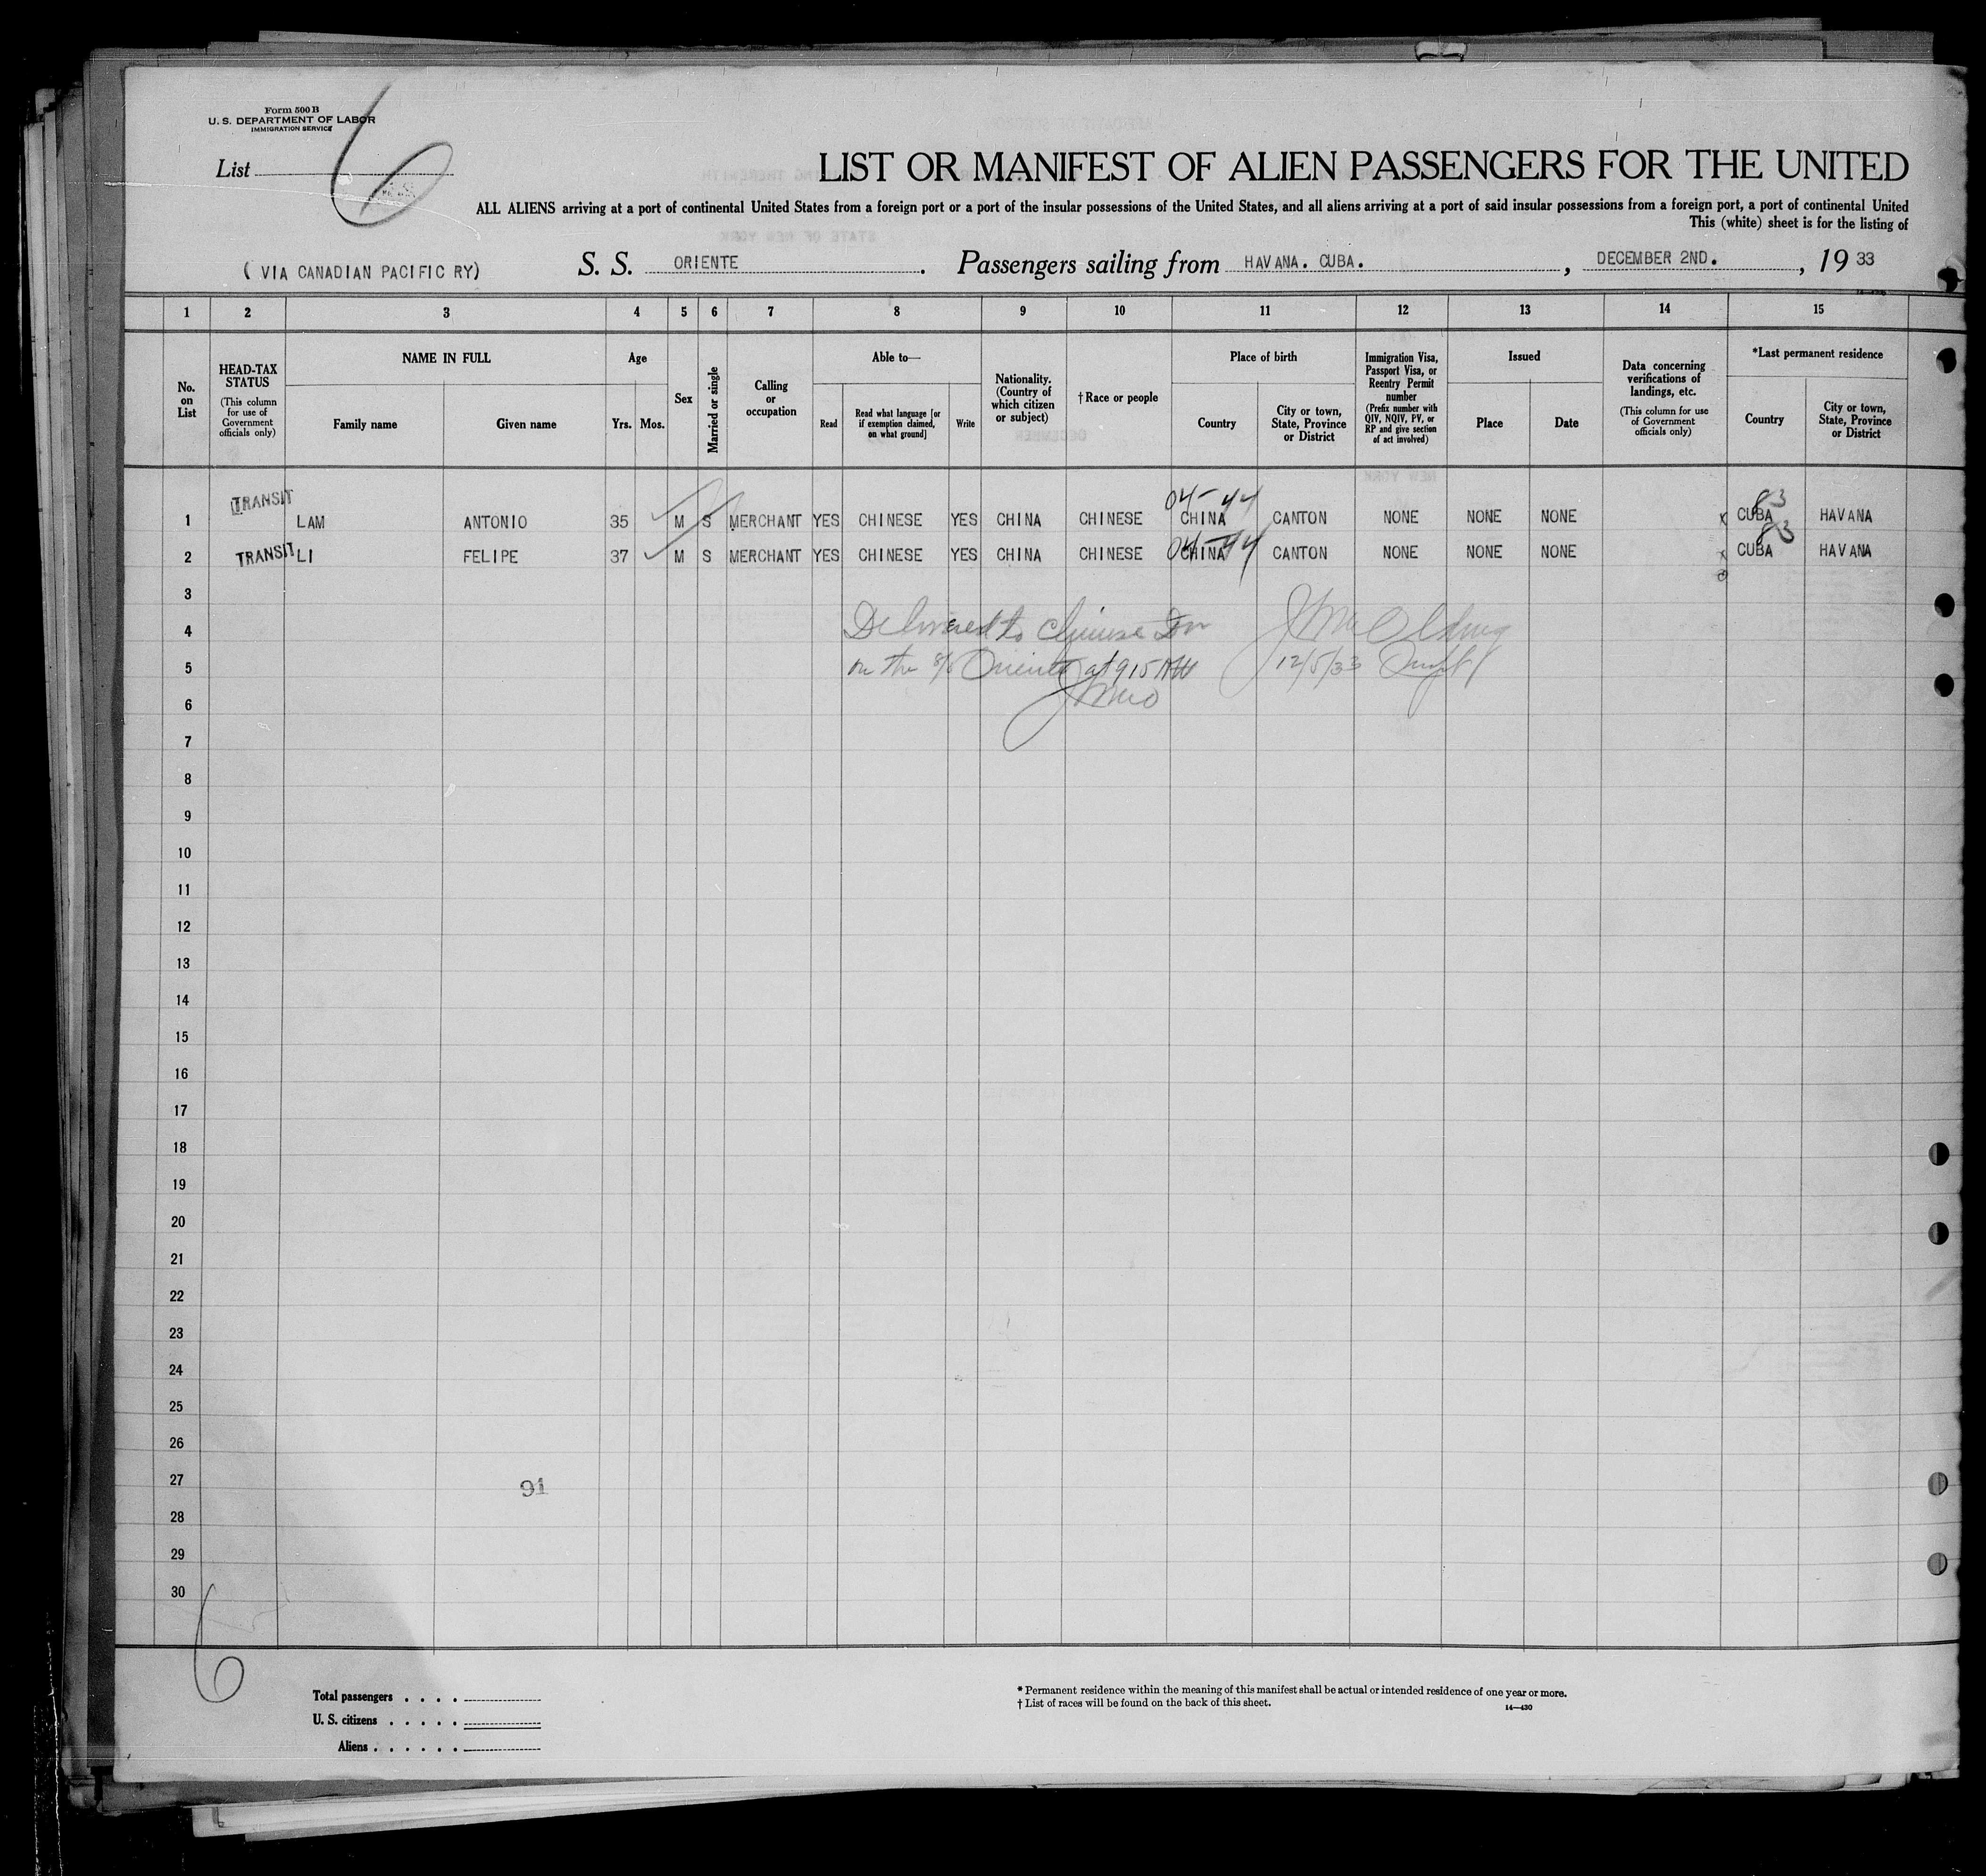 Form 500 B
U. S. DEPARTMENT OF LABOR
IMMIGRATION SERVICE
List 6
LIST OR MANIFEST OF ALIEN PASSENGERS FOR THE UNITED
ALL ALIENS arriving at a port of continental United States from a foreign port or a port of the insular possessions of the United States, and all aliens arriving at a port of said insular possessions from a foreign port, a port of continental United
This (white) sheet is for the listing of
( VIA CANADIAN PACIFIC RY) S. S. ORIENTE. Passengers sailing from HAVANA. CUBA. , DECEMBER 2ND. , 19 33
1 2 3 4 5 6 7 8 9 10 11 12 13 14 15
No. on List
HEAD-TAX STATUS
(This column for use of Government officials only)
NAME IN FULL
Family name Given name
Age
Yrs. Mos.
Sex
Married or single
Calling or occupation
Able to—
Read
Read what language [or if exemption claimed, on what ground]
Write
Nationality. (Country of which citizen or subject)
†Race or people
Place of birth
Country
City or town, State, Province or District
Immigration Visa, Passport Visa, or Reentry Permit number
(Prefix number with QIV, NQIV, PV, or RP and give section of act involved)
Issued
Place Date
Data concerning verifications of landings, etc.
(This column for use of Government officials only)
*Last permanent residence
Country
City or town, State, Province or District
TRANSIT 04-44 83
1 LAM ANTONIO 35 M S MERCHANT YES CHINESE YES CHINA CHINESE CHINA CANTON NONE NONE NONE x CUBA HAVANA
04-44 83
2 TRANSIT LI FELIPE 37 M S MERCHANT YES CHINESE YES CHINA CHINESE CHINA CANTON NONE NONE NONE x CUBA HAVANA
3
4 Delivered to Chinese
5 on the S/S Oriente at 915 AM 12/5/33
6
7
8
9
10
11
12
13
14
15
16
17
18
19
20
21
22
23
24
25
26
27 91
28
29
30
6
Total passengers . . . .
U. S. citizens . . . . .
Aliens . . . . . .
* Permanent residence within the meaning of this manifest shall be actual or intended residence of one year or more.
† List of races will be found on the back of this sheet. 14—430